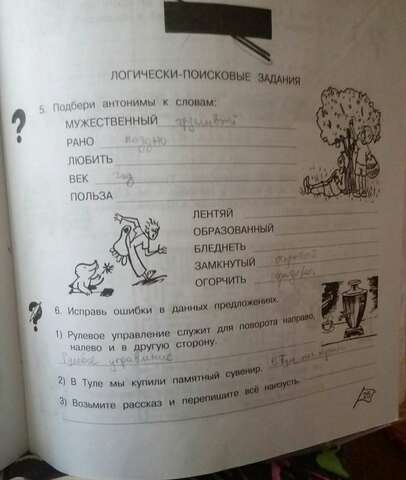 ЛОГИЧЕСКИ-ПОИСКОВЫЕ ЗАДАНИЯ
5. Подбери антонимы к словам:
МУЖЕСТВЕННЫЙ трусливый
РАНО поздно
ЛЮБИТЬ
ВЕК год
ПОЛЬЗА
ЛЕНТЯЙ
ОБРАЗОВАННЫЙ
БЛЕДНЕТЬ
ЗАМКНУТЫЙ
ОГОРЧИТЬ
6. Исправь ошибки в данных предложениях.
1) Рулевое управление служит для поворота направо,
налево и в другую сторону.
управление
2) В Туле мы купили памятный сувенир. В Туле мы
3) Возьмите рассказ и перепишите всё наизусть.